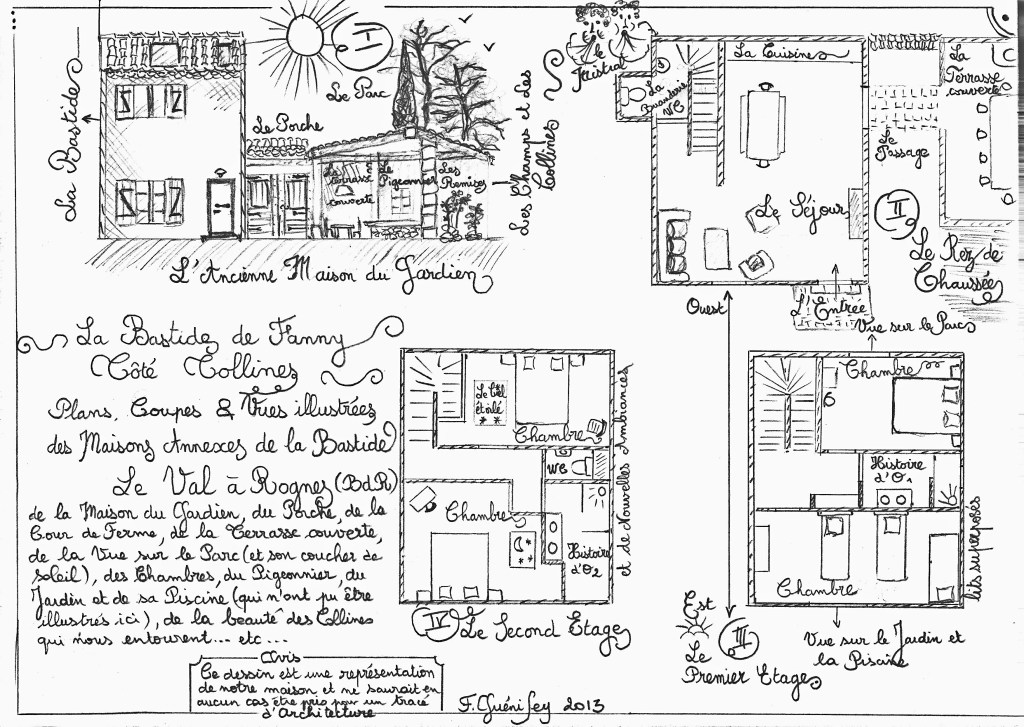 I
Le Parc
La Bastide
Le Porche
La terrasse couverte
Le Pigeonnier
Les Remises
Les Champs et Les
Collines
L'Ancienne Maison du Gardien
le
Mistral
La
Buanderie
WC
La Cuisine
La
Terrasse
couverte
Le
Passage
Le Séjour
II
Le Rez de
Chaussée
L'Entrée
Ouest
La Bastide de Fanny
Côté Collines
Plans, Coupes & Vues illustrées
des Maisons Annexes de la Bastide
Le Val à Rognes (BdR)
de la Maison du Gardien, du Porche, de la
Cour de Ferme, de la Terrasse couverte,
de la Vue sur le Parc (et son coucher de
soleil), des Chambres, du Pigeonnier, du
Jardin et de sa Piscine (qui n'ont pu être
illustrés ici), de la beauté des Collines
qui nous entourent... etc...
Avis
Ce dessin est une représentation
de notre maison et ne saurait en
aucun cas être pris pour un tracé
d'Architecture
Le ciel
étoilé
Chambre
WC
Chambre
Histoire
d'O2
et de Nouvelles Ambiances
IV
Le Second Etage
F. Guénifey 2013
Vue sur le Parc
Chambre
Histoire
d'O1
Chambre
lits superposés
Est
III
Le
Premier Etage
Vue sur le Jardin et
la Piscine